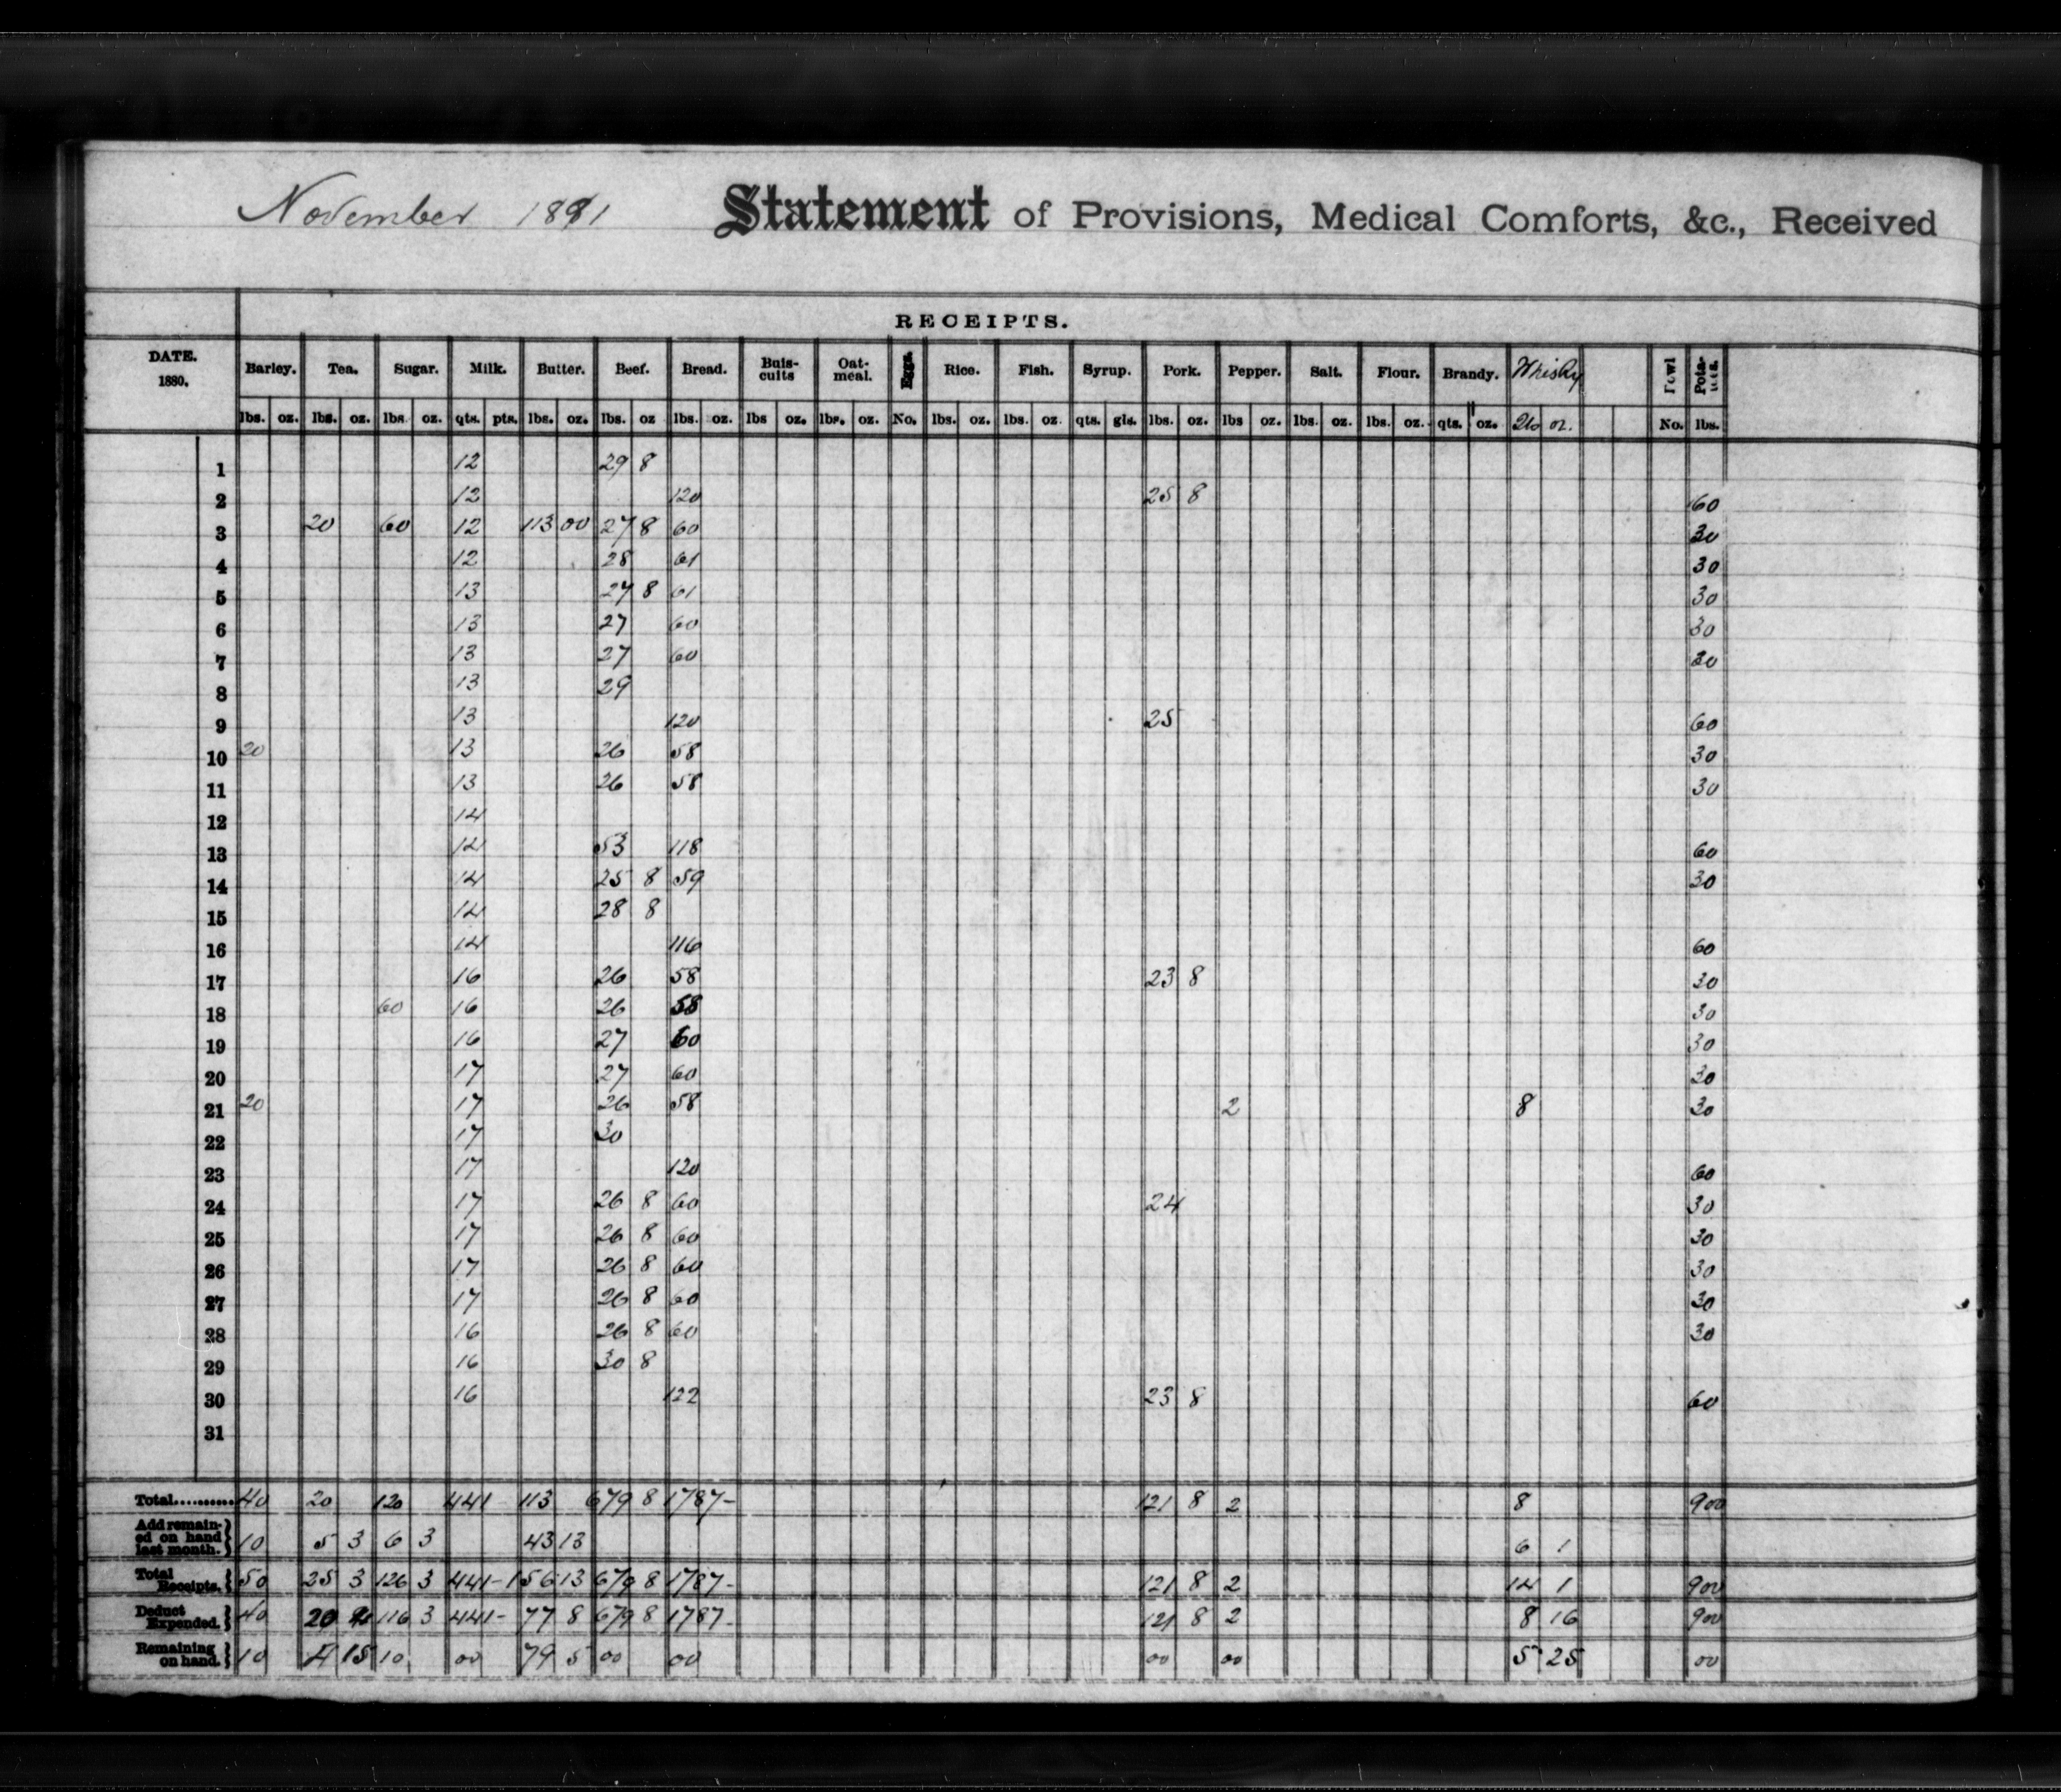 November 1881 Statement of Provisions, Medical Comforts, &c., Received
RECEIPTS.
DATE. 1880. Barley. Tea. Sugar. Milk. Butter. Beef. Bread. Buis-cuits Oat-meal. Eggs. Rice. Fish. Syrup. Pork. Pepper. Salt. Flour. Brandy. Whisky Fowl Pota-
lbs. oz. lbs. oz. lbs. oz. qts. pts. lbs. oz. lbs. oz lbs. oz. lbs oz. lbs. oz. No. lbs. oz. lbs. oz. qts. gls. lbs. oz. lbs oz. lbs. oz. lbs. oz. qts. oz. oz. No. lbs.
1 12 29 8
2 12 120 25 8 60
3 20 60 12 113 00 27 8 60 30
4 12 28 61 30
5 13 27 8 61 30
6 13 27 60 30
7 13 27 60 30
8 13 29
9 13 120 25 60
10 20 13 26 58 30
11 13 26 58 30
12 14
13 14 53 118 60
14 14 25 8 59 30
15 14 28 8
16 14 116 60
17 16 26 58 23 8 30
18 60 16 26 58 30
19 16 27 60 30
20 17 27 60 30
21 20 17 26 58 2 8 30
22 17 30
23 17 120 60
24 17 26 8 60 24 30
25 17 26 8 60 30
26 17 26 8 60 30
27 17 26 8 60 30
28 16 26 8 60 30
29 16 30 8
30 16 122 23 8 60
31
Total.......... 40 20 120 441 113 679 8 1787- 121 8 2 8 900
Add remain-ed on hand last month. 10 5 3 6 3 43 13 6 1
Total Receipts. 50 25 3 126 3 441- 156 13 679 8 1787- 121 8 2 14 1 900
Deduct Expended. 40 20 4 116 3 441- 77 8 679 8 1787- 121 8 2 8 16 900
Remaining on hand. 10 4 15 10 00 79 5 00 00 00 00 5 25 00